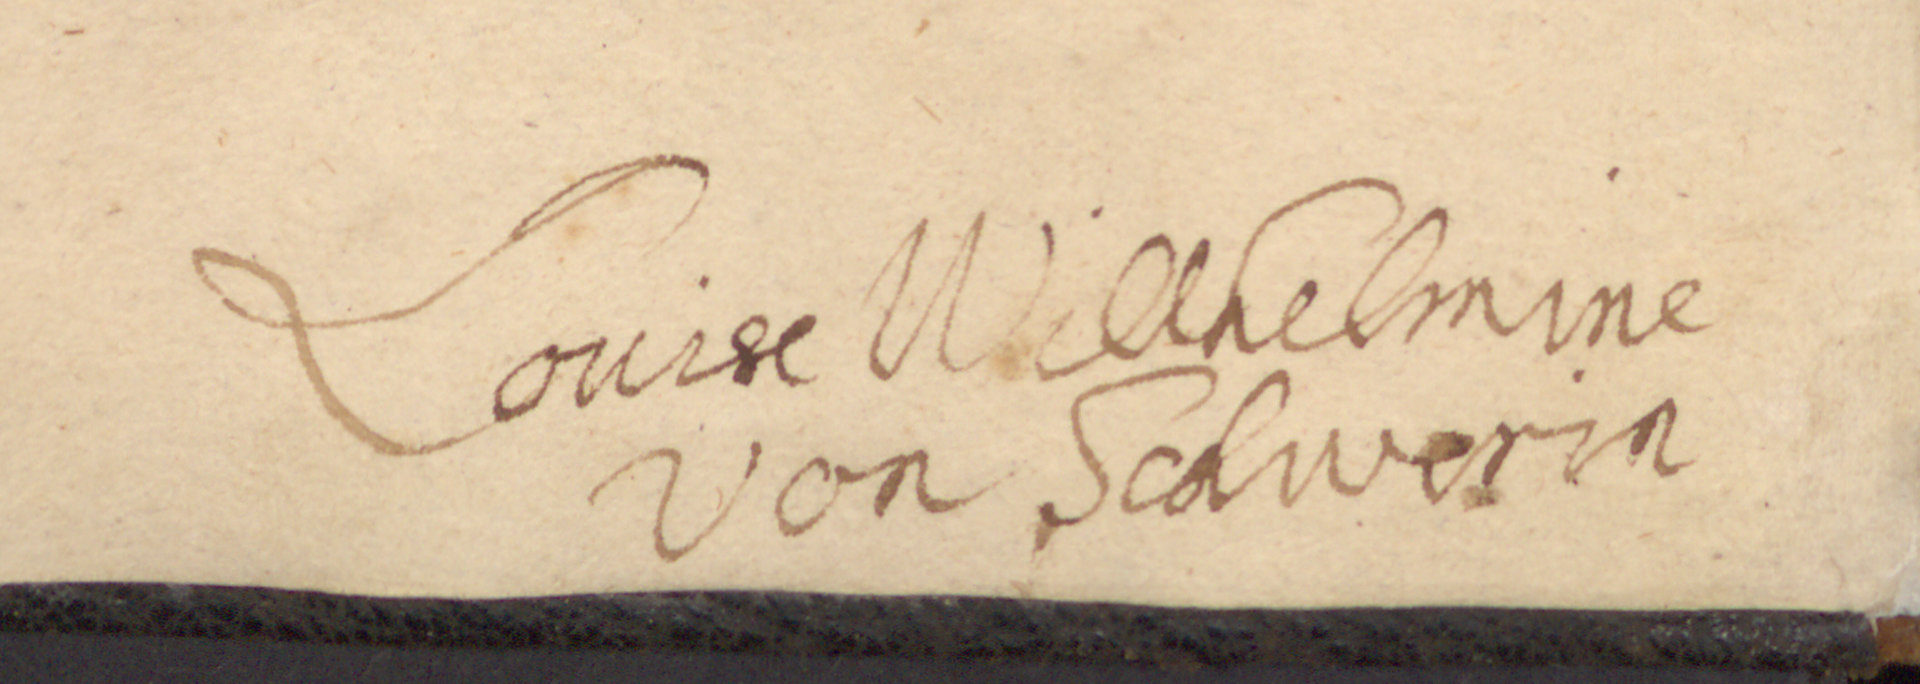 Louise Wilhelmine
von Schwerin